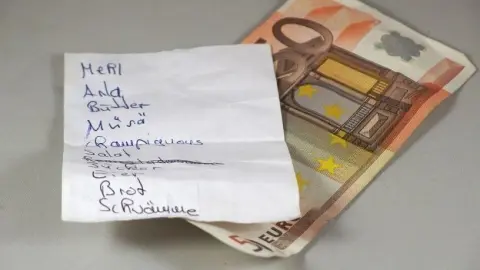 MeHl
Butter
Müsli
champignons
Salat
Zucker
Eier
Brot
Schwämme
5 EURO